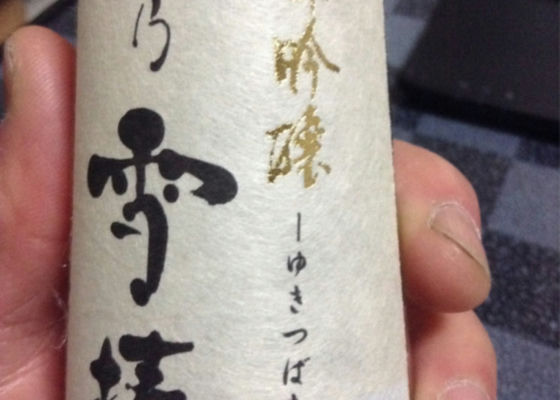 吟醸
ーゆきつば
乃雪椿